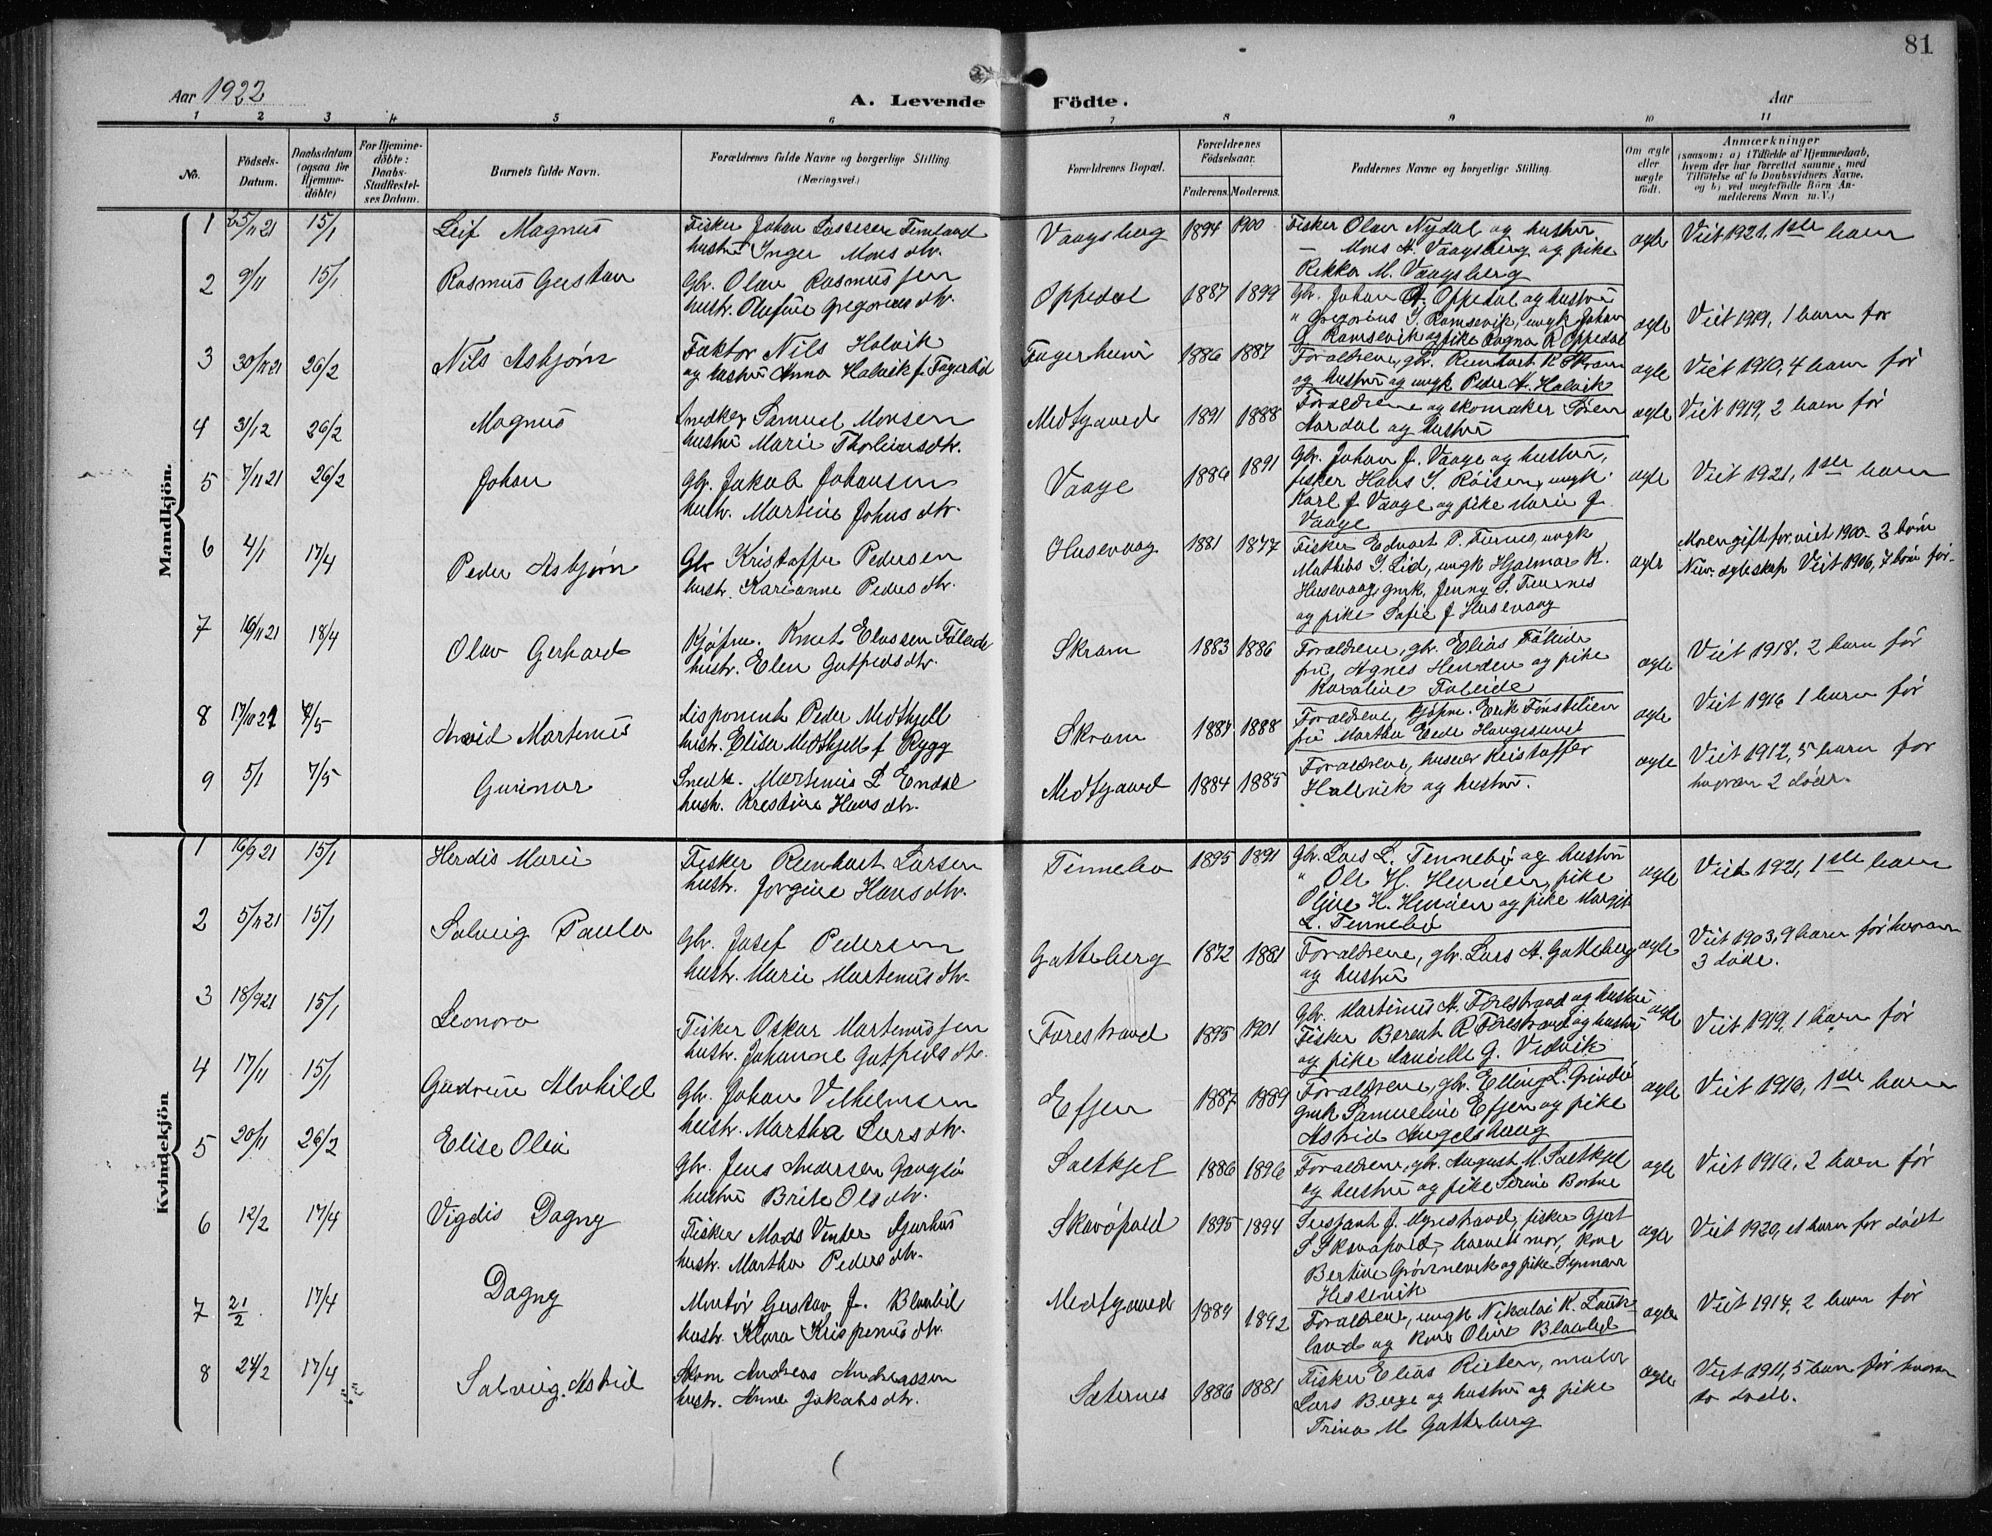 81
Aar 1922
A. Levende
Födte.
Aar
1 2 3 4 5 6 7 8 9 10 11
No.
Födsels-Datum.
Daabsdatum (ogsaa för Hjemme-döbte)
For Hjemme-döbte: Daabs-Stadfestel-ses Datum.
Barnets fulde Navn.
Forældrenes fulde Navne og borgerlige Stilling.
(Næringsvei.)
Forældrenes Bopæl.
Forældrenes Födselsaar.
Faderens. Moderens.
Faddernes Navne og borgerlige Stilling.
Om ægte eller uægte födt.
Anmærkninger
(saasom: a) i Tilfælde af Hjemmedaab, hvem der har forrettet samme, med Tilföielse af to Daabsvidners Navne, og b) ved uægtefödte Börn An-melderens Navn m. V.)
Mandkjön.
1 25/11 21 15/1 Leif Magnus
Fisker Johan Lassesen
hustru Inger Monsdtr.
Vaagsberg 1894 1900
Fisker Olav Nydal og hustru
Mons A. Vaagsberg og pike
Rikka M. Vaagsberg
ægte Viet 1921, 1ste barn
2 9/11 15/1 Rasmus Gustav
Gbr. Olav Rasmussen
hustr. Olufine Gregoriusdtr.
Oppedal 1887 1899
Gbr. Johan A. Oppedal og hustru
" Gregorius S. Ramsevik, ungk Johan
G. Ramsevik og pike Ragna R. Oppedal
ægte Viet 1919, 1 barn før
3 30/11 21 26/2 Nils Asbjørn
Faktor Nils Halvik
og hustru Anna Halvik f. Fagerlid
Fagerheim 1886 1887
Forældrene, gbr. Reinhart R.
og hustru og ungk Peder A. Halvik
ægte Viet 1910, 4 barn før
4 31/12 26/2 Magnus
Snedker Samuel Monsen
hustru Marie Thorleivsdtr.
Medtgaard 1891 1888
Forældrene og skomaker Søren
Aardal og hustru
ægte Viet 1919, 2 barn før
5 7/11 21 26/2 Johan
Gbr. Jakob Johansen
hustr. Martine Johnsdtr.
Vaage 1886 1891
Gbr. Johan J. Vaage og hustru,
fisker Hans S. Røisen, ungk.
Karl J. Vaage og pike Marie J.
Vaage
ægte Viet 1921, 1ste barn
6 4/1 17/4 Peder Asbjørn
Gbr Kristoffer Pedersen
hustr. Karianne Pedersdtr.
Husevaag 1881 1877
Fisker Edvart P. Turnes, ungk
Mathias S. Lid, ungk Hjalmar K.
Husevaag, gmk. Jenny S. Turnes
og pike Sofie J Husevaag
ægte Moren gift før, viet 1900. 2 børn
Nuv. ægteskap Viet 1906, 7 børn før.
7 16/11 21 18/4 Olav Gerhard
Kjøpm. Knut Eliassen Faleide
hustr. Elen Gotfredsdtr.
Skram 1883 1886
Forældrene, gbr. Elias Faleide
fru Agnes Henden og pike
Karoline Faleide
ægte Viet 1918. 2 barn før
8 17/10 21 7/5 Arvid Martenus
disponent Peder Medhjell
hustr. Elise Medhjell f Rygg
Skram 1884 1888
Forældrene, kjøpm. Erik Tonstelien
fru Martha Eide
ægte Viet 1916 1 barn før
9 5/1 7/5 Gunnar
Snedk. Martenus L Endal
hustr. Kristine Hansdtr.
Medtgaard 1884 1885
Forældrene, husmor Kristoffer
Halsvik og hustru.
ægte Viet 1912, 5 barn før
hvorav 2 døde.
Kvindekjön
1 16/9 21 15/1 Herdis Marie
Fisker Reinhart Larsen
hustr. Jorgine Hansdtr.
Tennebø 1895 1891
Gbr. Lars L. Tennebø og hustru
" Ole H. Henden, pike
Oline H. Henden og pike Margit
L. Tennebø
ægte Viet 1921, 1ste barn
2 5/11 21 15/1 Solveig Paula
Gbr. Josef Pedersen
hustr. Marie Martenusdtr.
Gotteberg 1872 1881
Forældrene, gbr. Lars A. Gotteberg
og hustru
ægte Viet 1903, 9 barn før hvorav
3 døde.
3 18/9 21 15/1 Leonora
Fisker Oskar Martenussen
hustr. Johanne Gotfredsdtr.
Forestrand 1895 1901
Gbr. Martinus A. Forestrand og hustru
Fisker Berent R. Forestrand og hustru
og pike G. Vedvik
ægte Viet 1919, 1 barn før
4 17/11 15/1 Gudrun Alvhild
Gbr. Johan Vilhelmsen
hustr. Martha Larsdtr.
Efjen 1887 1889
Forældrene, gbr. Elling L. Grindø
gmk Samueline Efjen og pike
Astrid Angelshaug
ægte Viet 1916, 1ste barn
5 20/11 26/2 Elise Olea
Gbr. Jens Andersen Gangsø
hustru Brite Olsdtr.
Saltkjel 1886 1896
Forældrene, gbr. August M. Saltkjel
og hustru og pike Serine Bortne
ægte Viet 1916, 2 barn før
6 12/2 17/4 Vigdis Dagny
Fisker Mads Venter Gjerhus
hustr. Martha Pedersdtr.
Skavøpold 1895 1894
J. Mynestrand, fisker Gjert
S Skavøpold, barnets mor, kone
Bertine Grøvnevik og pike
Hessevik
ægte Viet 1920, et barn før dødt
7 21/2 17/4 Dagny
Montør Gustav J. Blaalid
hustr. Klara Krispinusdtr.
Medtgaard 1889 1892
Forældrene, ungk Nikolai K.
land og kone Oline Blaalid
ægte Viet 1914, 2 barn før
8 24/2 17/4 Solveig Astrid
Skom Andreas Andreassen
hustr. Anne Jakobsdtr.
Sæternes 1886 1881
Fisker Elias Rieber, maler
Lars Berge og hustru og pike
Trina M Gotteberg
ægte Viet 1911, 5 barn før hvorav
to døde.